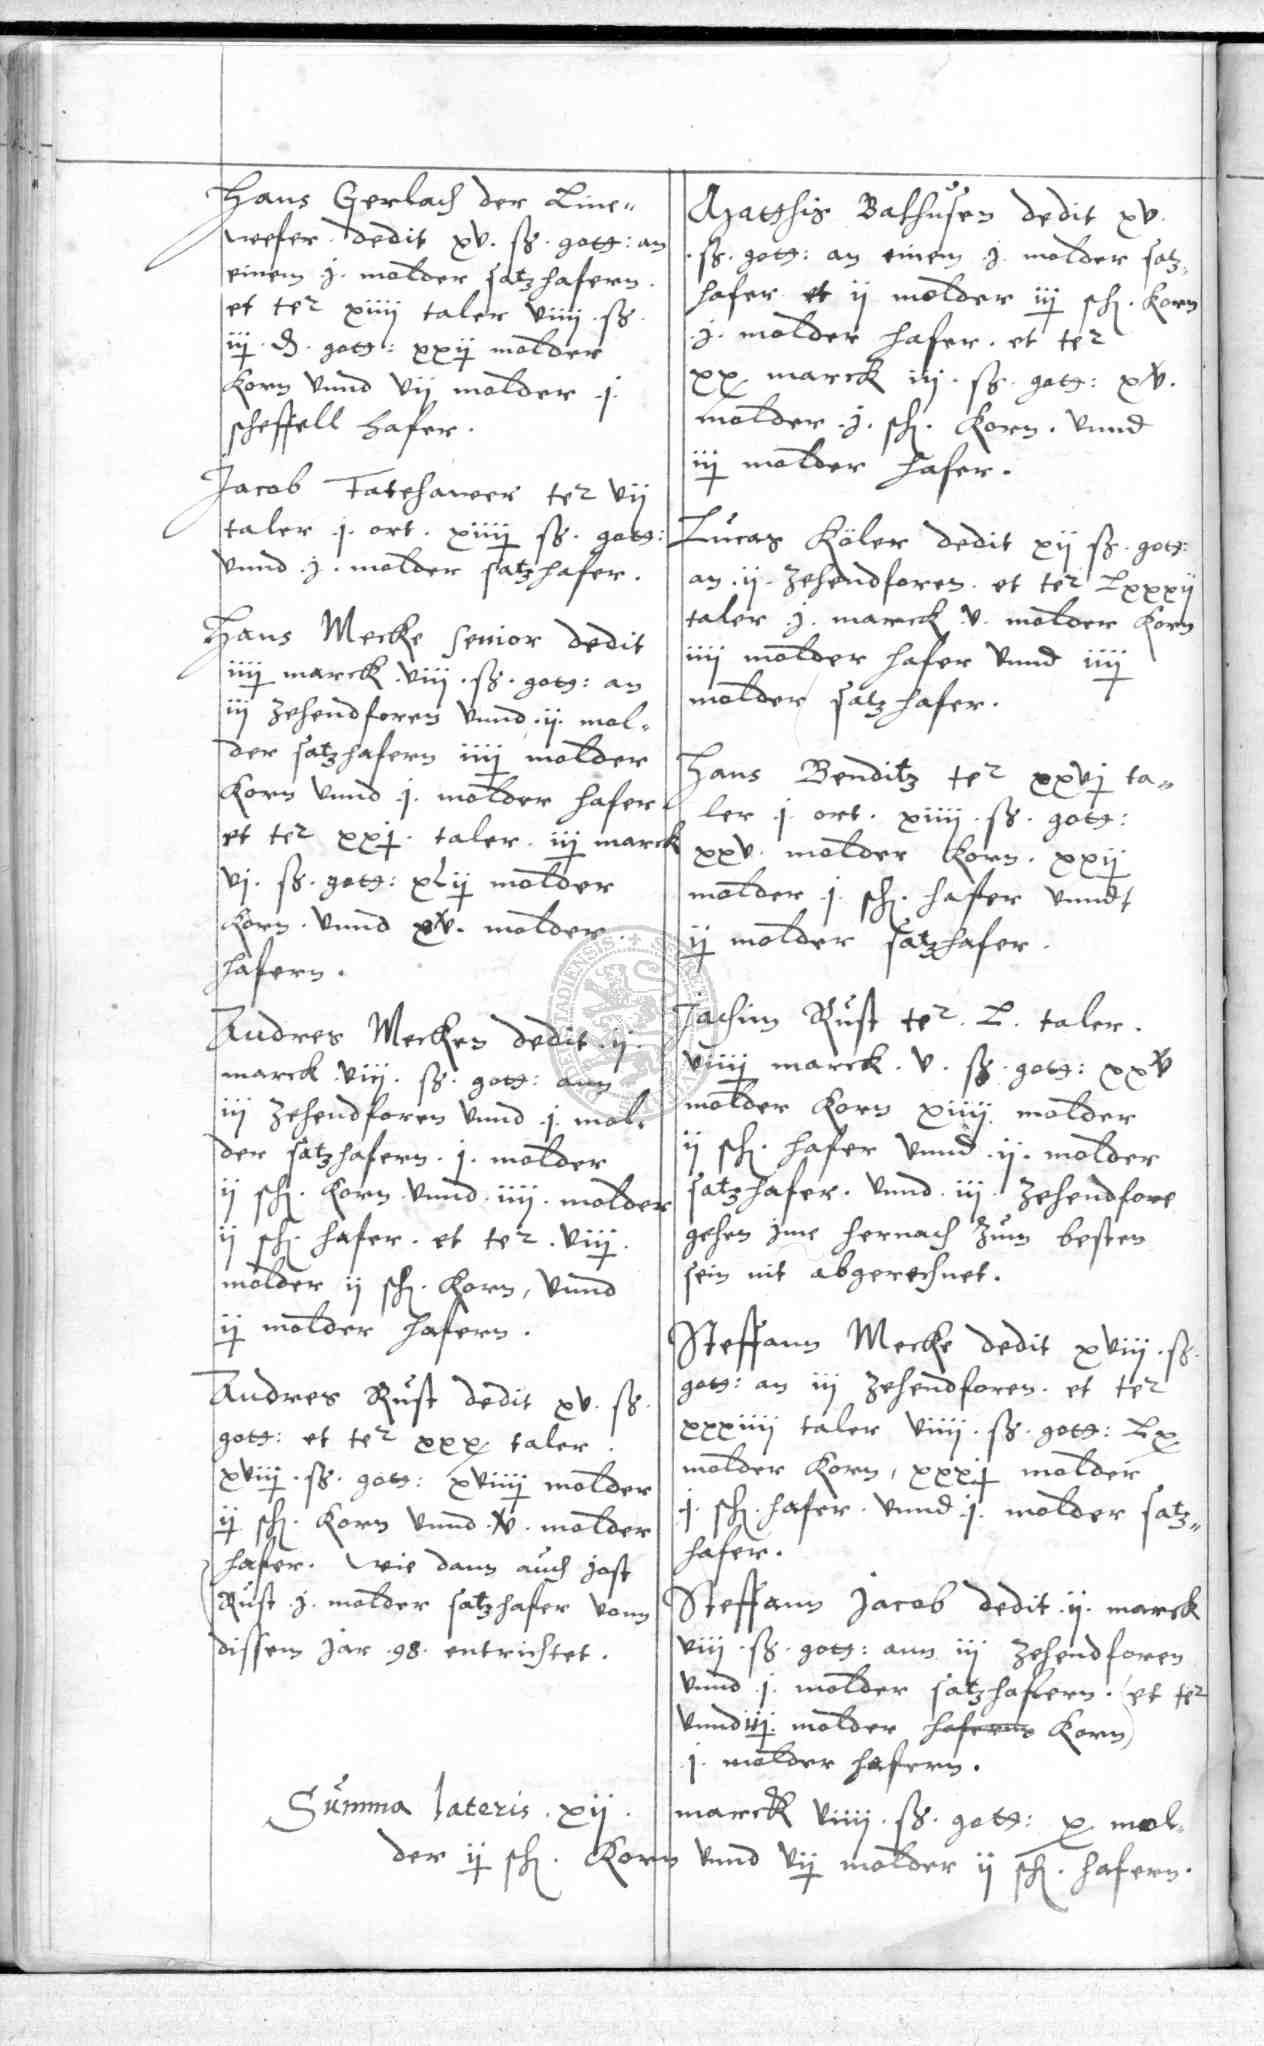 Hans Gerlach der Line„
wefer dedit xv. ß. gotg: an
einem j. molder satzhafern.
et ter xiiij taler viiij. ß.
iij. ₰. gotg: xxij molder
Korn vnnd vij molder .j.
scheffell hafer.
Jacob Fatehawer ter vij
taler .j. ort. xiiij ß. gotg:
vnnd .j. molder satzhafer.
Hans Mecke senior dedit
iiij marck .viij. ß. gotg: an
iij zehendforen vnnd .ij. mol„
der satzhafern iiij molder
Korn vnnd .j. molder hafer
et ter xxj. taler. iij marck
vj. ß. gotg: xLij molder
Korn. vnnd xv. molder
hafern.
Andres Mecken dedit .ij.
marck .viij. ß. gotg: ann
iij zehendforen vnnd .j. mol„
der satzhafern. j. molder
ij sch. Korn vnnd iiij. molder
ij sch. hafer. et ter. viij.
molder ij sch. Korn, vnnd
ij molder hafern.
Andres Rust dedit xv. ß.
gotg: et ter xxx taler.
xviij. ß. gotg: xviiij molder
ij sch. Korn vnnd .v. molder
hafer. wie dann auch jost
Rust .j. molder satzhafer vonn
dissem jar .98. entrichtet.
Matthis Balhusen dedit xv.
ß. gotg: an einem .j. molder satz„
hafer et ij molder iij sch. Korn
.j. molder hafer. et ter
xx marck iij. ß. gotg: xv.
molder .j. sch. Korn. vnnd
iij molder hafer.
Lucas Köler dedit xij ß. gotg:
an .ij. zehendforen. et ter Lxxxij
taler .j. marck .v. molder Korn
iiij molder hafer vnnd iiij
molder satzhafer.
Hans Benditz ter xxvj ta„
ler .j. ort. xiiij. ß. gotg:
xxv. molder Korn. xxij
molder .j. sch. hafer vnndt
ij molder satzhafer.
Jachim Rust ter. L. taler.
viiij marck. v. ß. gotg: xxv
molder Korn xiiij. molder
ij sch. hafer vnnd .ij. molder
satzhafer. vnnd .iij. zehendfore
gehen jme hernach zum besten
sein nit abgerechnet.
Steffann Mecke dedit xviij. ß.
gotg: an iij zehendforen. et ter
xxxiiij taler viiij. ß. gotg: Lx
molder Korn, xxxj molder
.j. sch. hafer. vnnd .j. molder satz„
hafer.
Steffann Jacob dedit .ij. marck
viij. ß. gotg: ann iij zehendforen
vnnd .j. molder satzhafern. (et ter
vnnd iij. molder haferns Korn)
.j. molder hafern.
Summa lateris .xij. marck viiij. ß. gotg: x mol„
der ij sch. Korn vnnd vij molder ij sch. hafern.